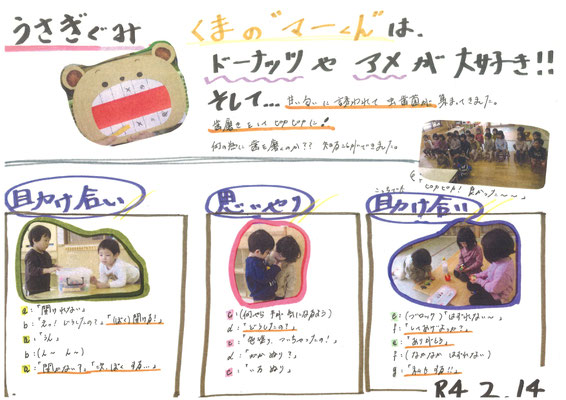 うさぎぐみ
くまの"マーくん"は、
ドーナッツや アメが 大好き!!
そして... 甘い匂いに誘われて 虫歯菌が 集まってきました。
歯磨きをして ピカピカに!
何の為に 歯を磨くのか?? 知る事ができました。
ピカピカ! 良かった〜〜」
助け合い
a:「開けれない」
b:「えっ!どうしたの?」「(ぼく)開ける!」
a:「うん」
b:(ん〜 ん〜)
a:「開かない?」「次、ぼく する…」
思いやり
c:(何やら 手が 気になるよう)
d:「どうしたの?」
c:「色塗り、ついちゃったの!」
d:「ぬり?」
c:「いろ ぬり」
助け合い
e:(ブロック)「はずれない〜」
f:「してあげよっか?」
e:「ありがとう」
f:(なかなか はずれない)
g:「私も する!!」
R4 2.14